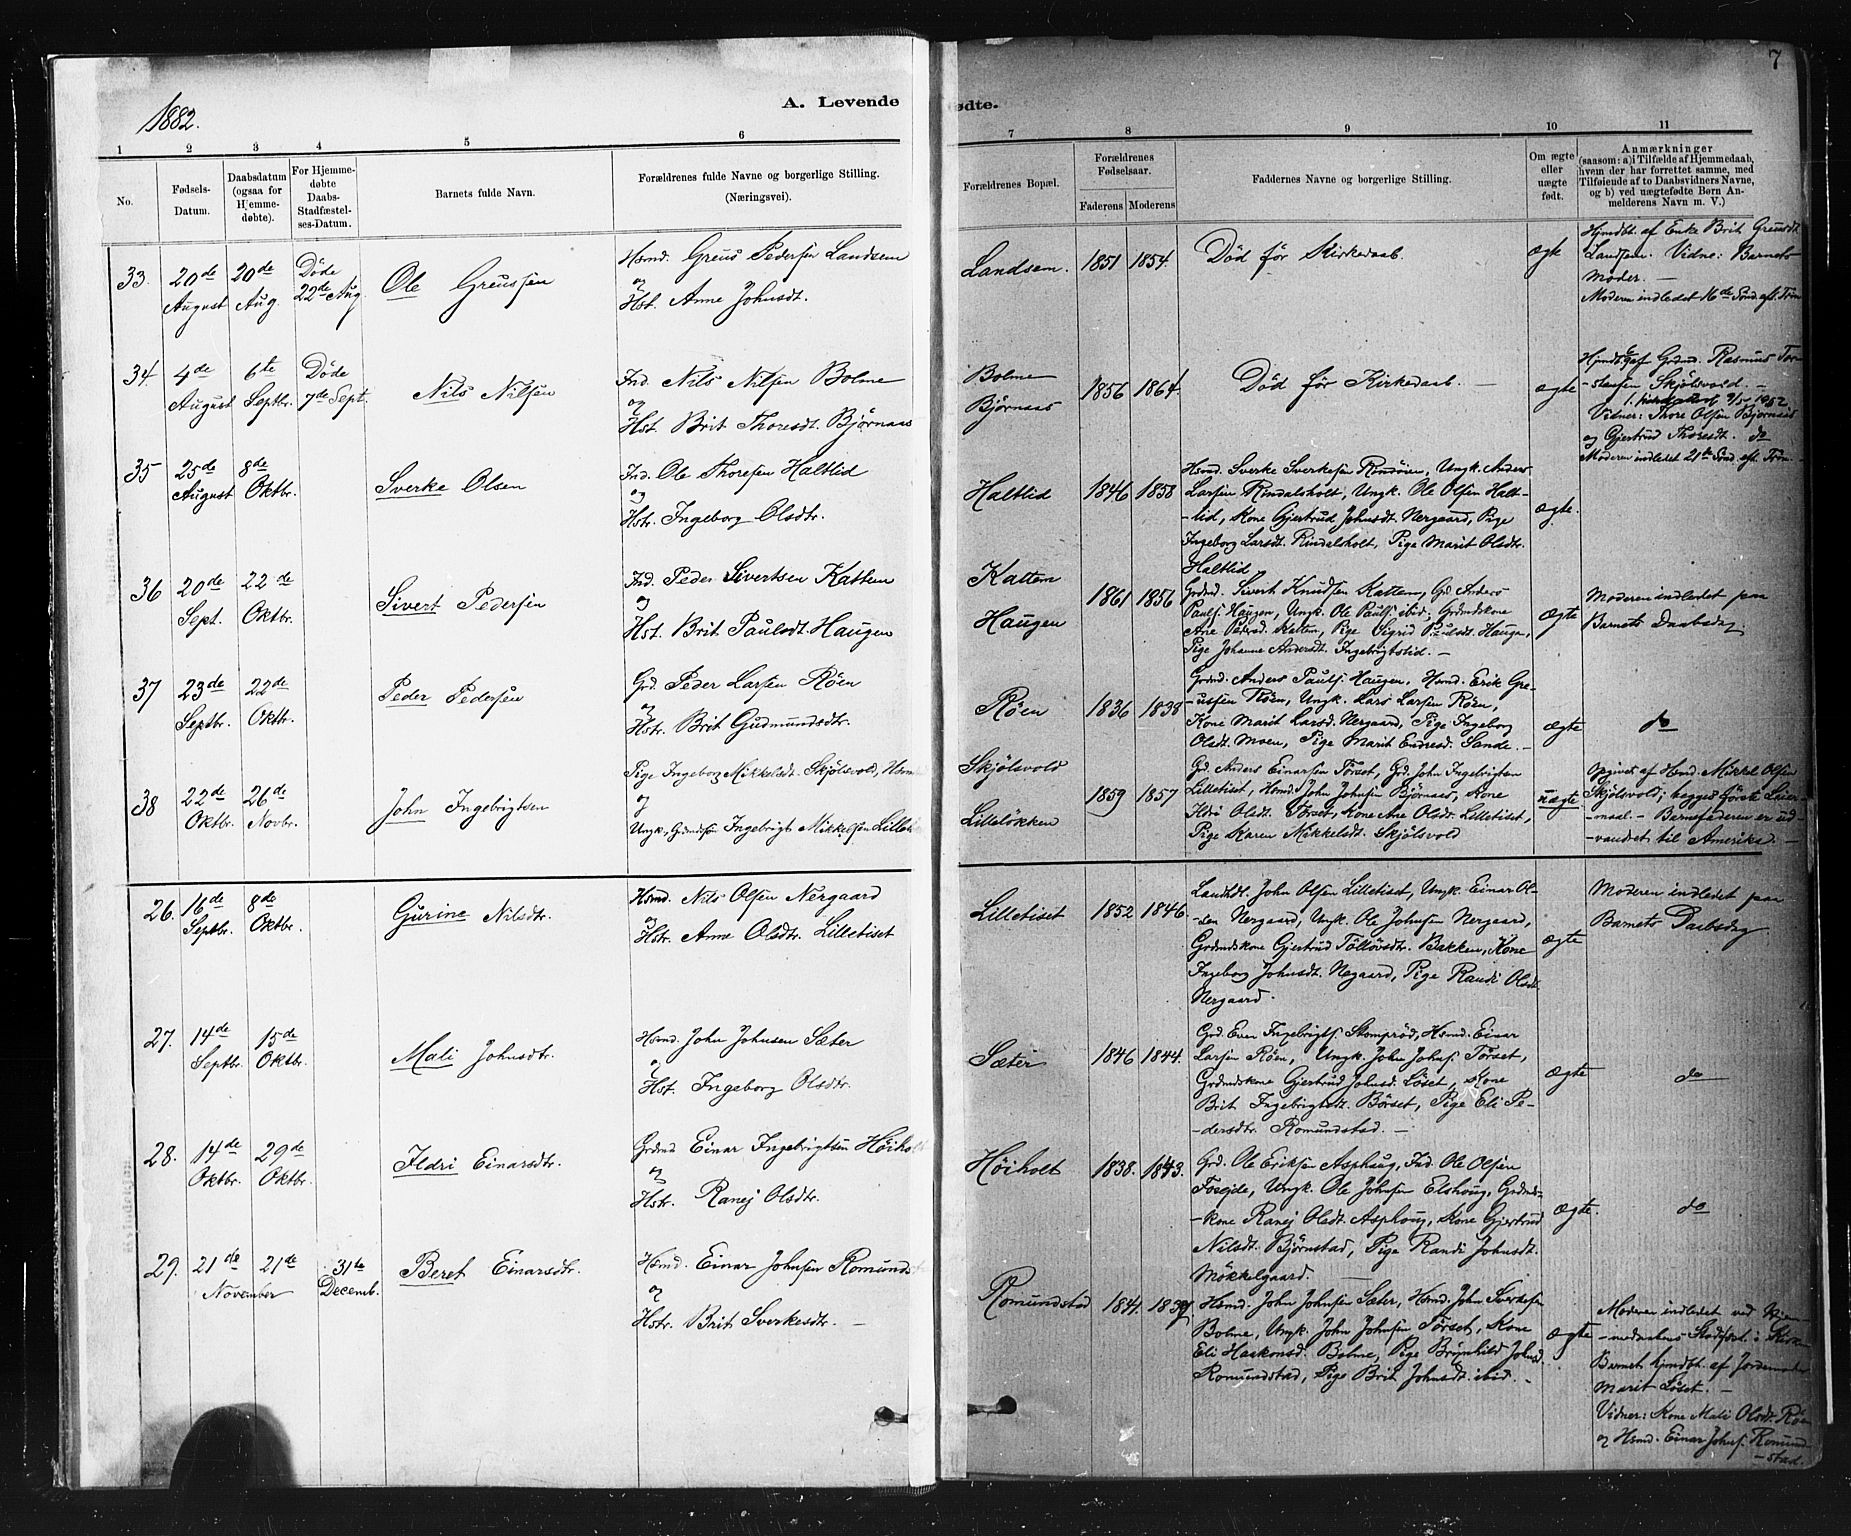 7
1882.
A. Levende fødte.
1 2 3 4 5 6 7 8 9 10 11
No.
Fødsels-Datum.
Daabsdatum (ogsaa for Hjemmedøbte).
For Hjemmedøbte Daabs-Stadfæstelses-Datum.
Barnets fulde Navn.
Forældrenes fulde Navne og borgerlige Stilling. (Næringsvei).
Forældrenes Bopæl.
Forældrenes Fødselsaar.
Faderens Moderens
Faddernes Navne og borgerlige Stilling.
Om ægte eller uægte født.
Anmærkninger
(saasom: a) i Tilfælde af Hjemmedaab,
hvem der har forrettet samme, med
Tilføiende af to Daabsvidners Navne,
og b) ved uægtefødte Børn Anmelderens Navn m. V.)
33. 20de August 20de Aug. Døde 22de Aug. Ole Greussen
Hsmd. Greus Pedersen Landsem
og
Hst. Anne Johnsdt.
Landsem. 1851 1854. Død før Kirkedaab. ægte
Hjmdbt. af Enke Brit Greusdt.
Landsem. Vidne: Barnets
Moder. —
Moderen indledet 16de Sønd. eft. Trin.
34. 4de August 6te Septbr. Døde 7de Sept. Nils Nilsen
Ind. Nils Nilsen Bolme
og
Hst. Brit Thoresdt. Bjørnaas
Bolme
Bjørnaas
1856 1864. Død før Kirkedaab. — ægte
Hjmdbt. af Grdmd. Rasmus Torstensen Skjølsvold. —
Vidner: Thore Olsen Bjørnaas
og Gjertrud Thoresdt. do
Moderen indledet 21de Sønd. eft. Trin. —
35 25de August 8de Oktbr. Sverke Olsen
Ind. Ole Thoresen Haltlid
og
Hstr. Ingeborg Olsdtr.
Haltlid 1846 1858
Hsmd. Sverke Sverkesen Rønningen, Ungk. Anders
Larsen Rindalsholt, Ungk. Ole Olsen Halt-
-lid, Kone Gjertrud Johnsdt. Nergaard, Pige
Ingeborg Larsdt. Rindalsholt, Pige Marit Olsdtr.
Haltlid
ægte.
36 20de Sept. 22de Oktbr. Sivert Pedersen
Ind. Peder Sivertsen Kattem
og
Hst. Brit Paulsdt. Haugen
Kattem
Haugen
1861 1856
Grdmd. Sivert Knudsen Kattem, Grd. Anders
Pauls. Haugen, Ungk. Ole Pauls. ibid; Grdmdskone
Ane Pedersd. Kattem, Pige Sigrid Paulsdt. Haugen,
Pige Johanne Andersdt. Ingebrigtslid. —
ægte
Moderen indledet paa
Barnets Daabsdag.
37 23de Septbr. 22de Oktbr. Peder Pedersen
Grd. Peder Larsen Røen
og
Hstr. Brit Gudmundsdtr.
Røen 1836 1838
Grdmd. Anders Pauls. Haugen, Hsmd. Erik Gre-
-ussen Røen, Ungk. Lars Larsen Røen,
Kone Marit Larsd. Nergaard, Pige Ingeborg
Olsdt. Moen, Pige Marit Endresd. Sande. —
ægte do
38 22de Oktbr. 26de Novbr. John Ingebrigtsen
Pige Ingeborg Mikkelsdt. Skjølsvold,
og
Ungk., Grdmdssøn Ingebrigt Mikkelsen
Skjølsvold
Lilleløkken
1859 1857
Grd. Anders Einarsen Törset, Grd. John Ingebrigtsen
Lilletiset, Hsmd. John Johnsen Bjørnaas, Kone
Ildri Olsdt. Törset, Kone Ane Olsdt. Lilletiset,
Pige Karen Mikkelsdt. Skjølsvold
uægte
Opgivet af Hsmd. Mikkel Olsen
Skjølsvold; begges første Leier-
-maal. — Barnefaderen er ud-
-vandret til Amerika. —
26. 16de Septbr. 8de Oktbr. Gurine Nilsdtr.
Hsmd. Nils Olsen Nergaard
og
Hstr. Anne Olsdtr. Lilletiset
Lilletiset 1852 1846.
John Olsen Lilletiset, Ungk. Einar Ol-
-sen Nergaard, Ungk. Ole Johnsen Nergaard,
Grdmdskone Gjertrud Tøllövsdtr. Bakken, Kone
Ingeborg Johnsdt. Negaard, Pige Randi Olsdt.
Nergaard.
ægte
Moderen indledet paa
Barnets Daabsdag
27. 14de Septbr. 15de Oktbr. Mali Johnsdtr.
Hsmd. John Johnsen Sæter
og
Hst. Ingeborg Olsdtr.
Sæter 1846 1844.
Grd. Even Ingebrigts. Stomprød, Hsmd. Einar
Larsen Røen, Ungk. John Johns. Törset,
Grdmdskone Gjertrud Johnsd. Löset, Kone
Brit Ingebrigtsdt. Börset, Pige Eli Pe-
-dersdtr. Romundstad. —
ægte do
28. 14de Oktbr. 29de Oktbr. Ildri Einarsdtr.
Grdmd Einar Ingebrigtsen Höiholt
og
Hstr. Ranej Olsdtr.
Höiholt 1838. 1843.
Grd. Ole Eriksen Asphaug, Ind. Ole Olsen
Fosgjele, Ungk. Ole Johnsen Elshoug, Grdmds-
-kone Ranej Olsdt. Asphoug, Kone Gjertrud
Nilsdt. Bjørnstad, Pige Randi Johnsdt.
Møkkelgaard. —
ægte. do
29. 21de 21de November 31te Decemb. Beret Einarsdtr.
Hsmd. Einar Johnsen Romundst
og
Hstr. Brit Sverkesdtr. —
Romundstad 1841. 1839
Hsmd. John Johnsen Sæter, Hsmd. John Sverkesen
Bolme, Ungk. John Johnsen Törset, Kone
Eli Haakonsd. Bolme, Pige Brynhild Johnsd.
Romundstad, Pige Brit Johnsdt. ibid. —
ægte
Moderen indledet ved Hjem-
-medaabens Stadfæst. i Kirken
Barnet hjmdbt. af Jordemoder
Marit Löset. —
Vidner: Kone Mali Olsdt. Røen
og Hsmd. Einar Johns. Romund-
-stad.